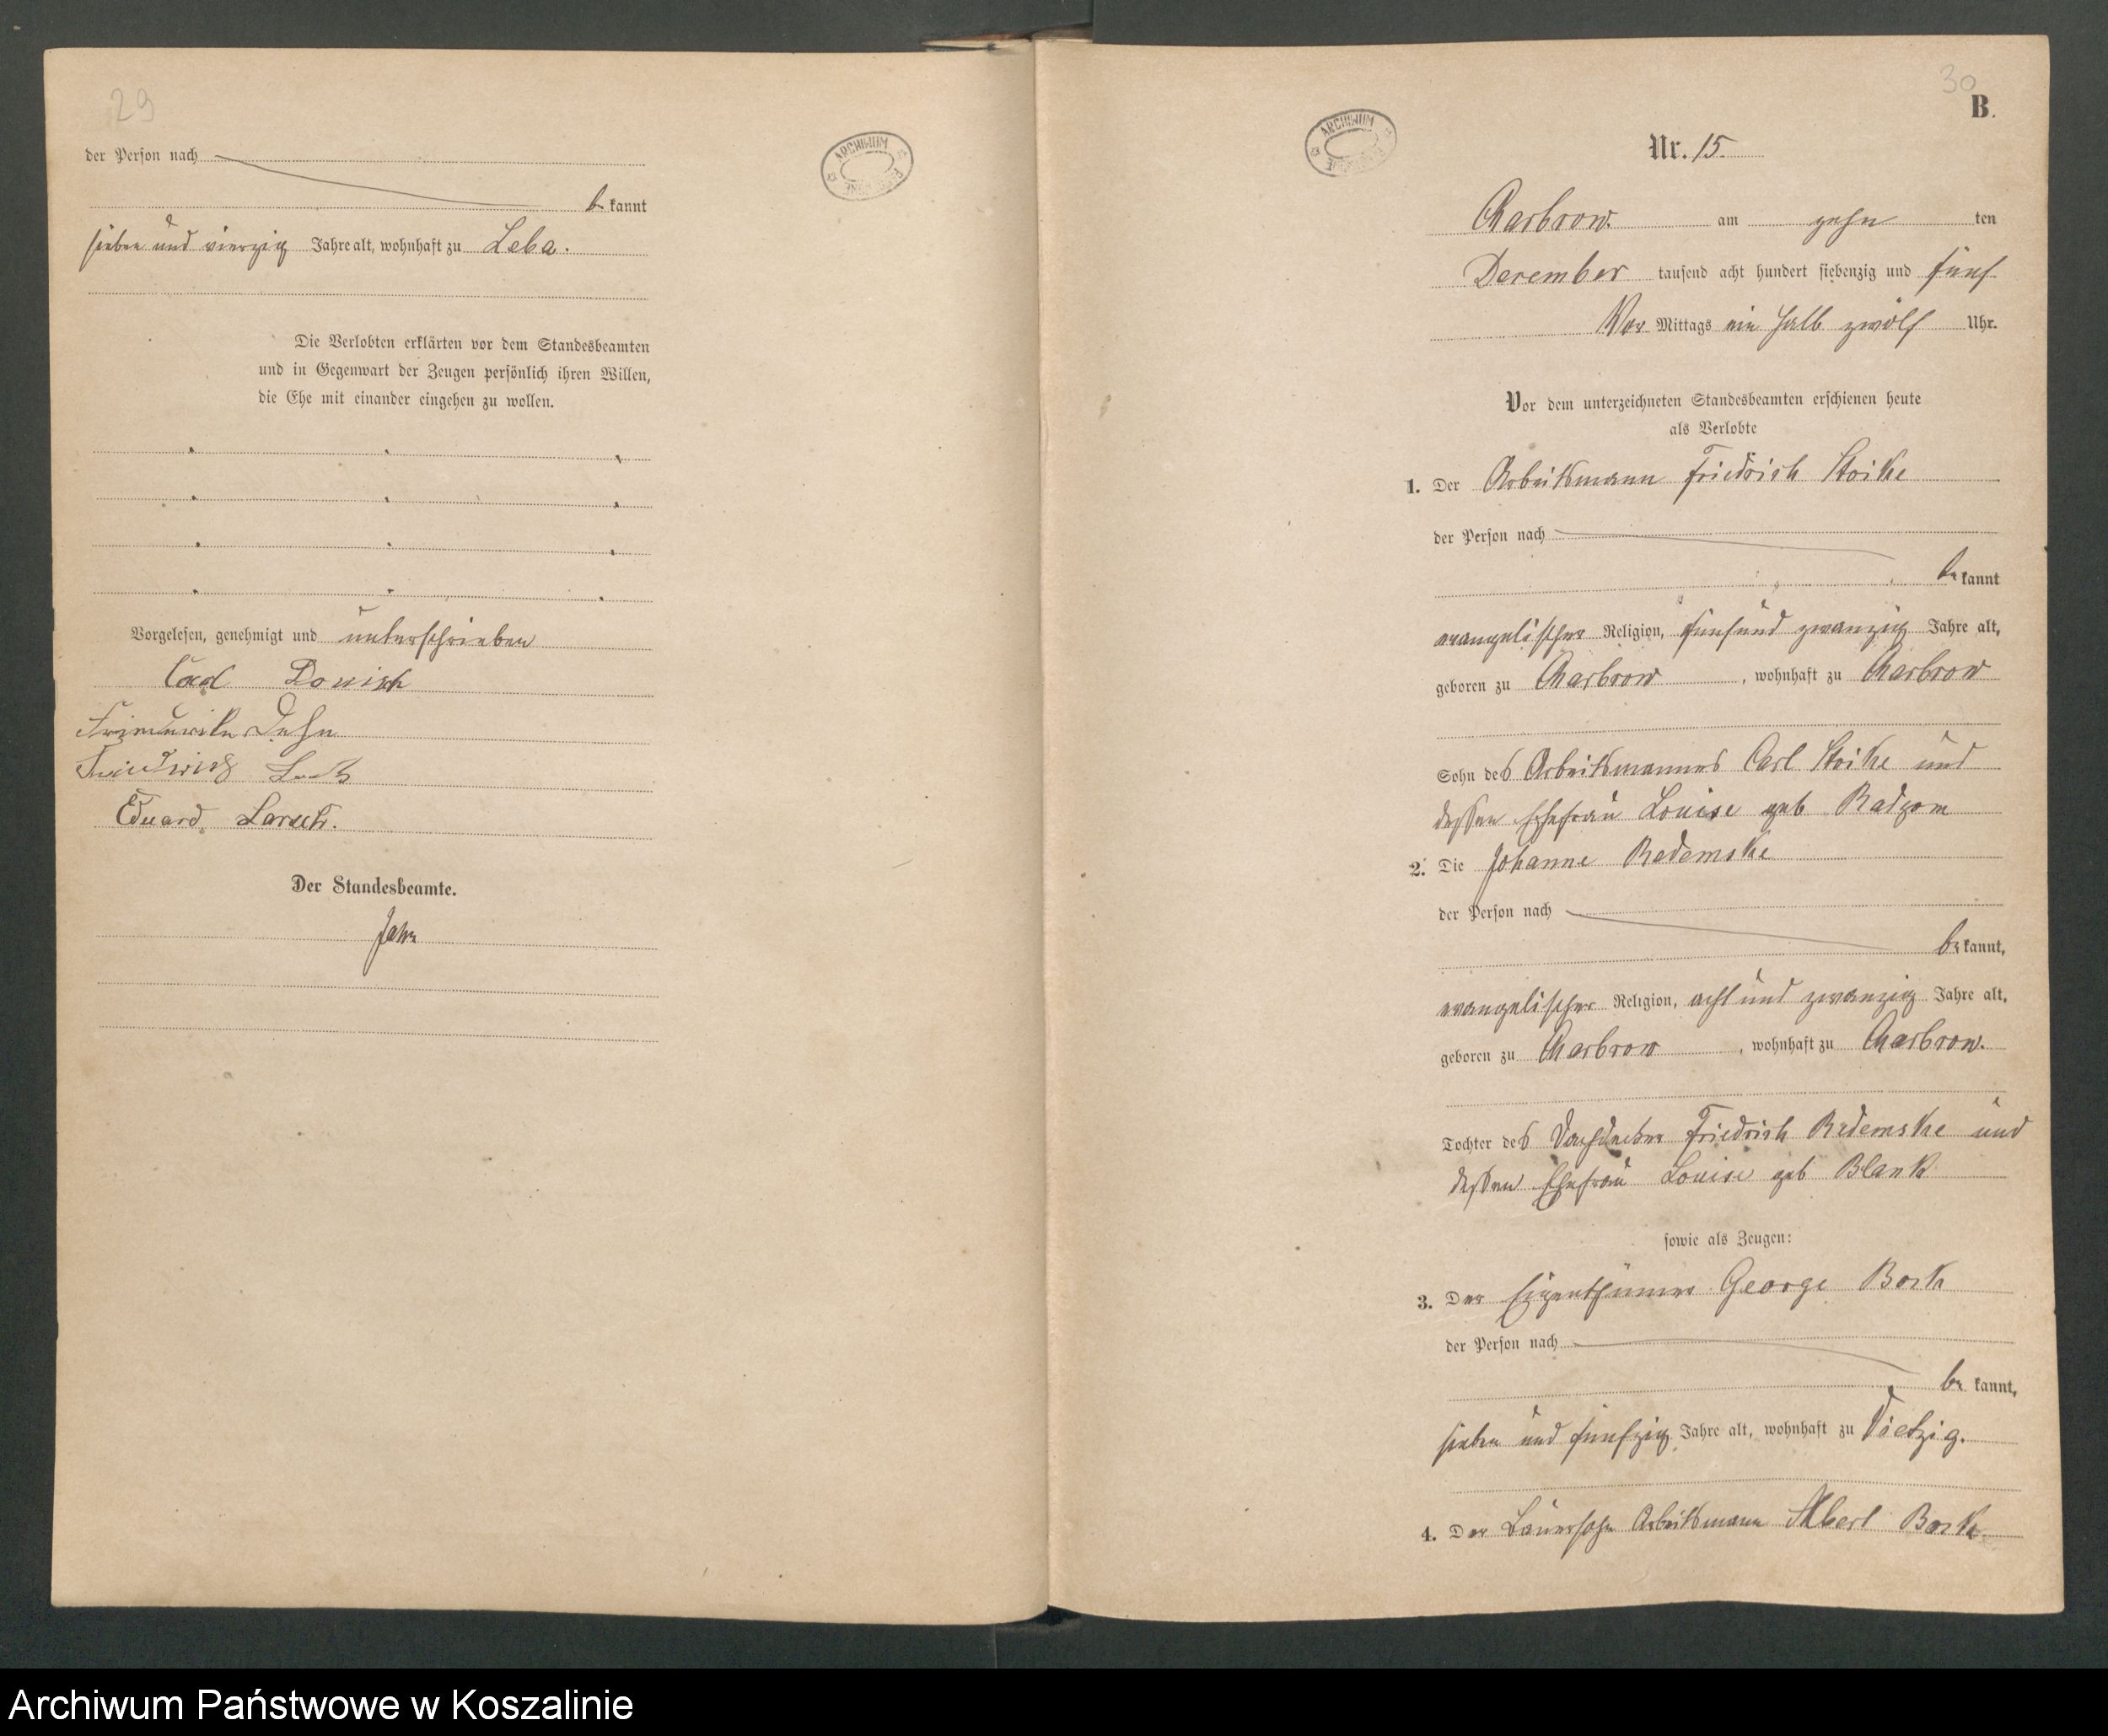 29
der Person nach
be kannt
sieben und vierzig Jahre alt, wohnhaft zu Leba.
Die Verlobten erklärten vor dem Standesbeamten
und in Gegenwart der Zeugen persönlich ihren Willen,
die Ehe mit einander eingehen zu wollen.
Vorgelesen, genehmigt und unterschrieben
Carl
Friederike Dehn
Eduard
Der Standesbeamte.
ARCHIWUM
30
B.
ARCHIWUM
Nr. 15.
Charbrow. am zehn ten
December tausend acht hundert siebenzig und fünf
Vor Mittags ein halb zwölf Uhr.
Vor dem unterzeichneten Standesbeamten erschienen heute
als Verlobte
1. Der Arbeitsmann Friedrich Stoike
der Person nach
be kannt
evangelischer Religion, fünfund zwanzig Jahre alt,
geboren zu Charbrow, wohnhaft zu Charbrow
Sohn des Arbeitsmannes Carl Stoike und
dessen Ehefrau Louise geb Radzom
2. Die Johanne Redemske
der Person nach
be kannt,
evangelischer Religion, acht und zwanzig Jahre alt,
geboren zu Charbrow, wohnhaft zu Charbrow.
Tochter des Dachdecker Friedrich Redemske und
dessen Ehefrau Louise geb Blank
sowie als Zeugen:
3. Der Eigenthümer George Bork
der Person nach
be kannt,
sieben und fünfzig Jahre alt, wohnhaft zu Vietzig.
4. Der Arbeitsmann Albert Bork
Archiwum Państwowe w Koszalinie